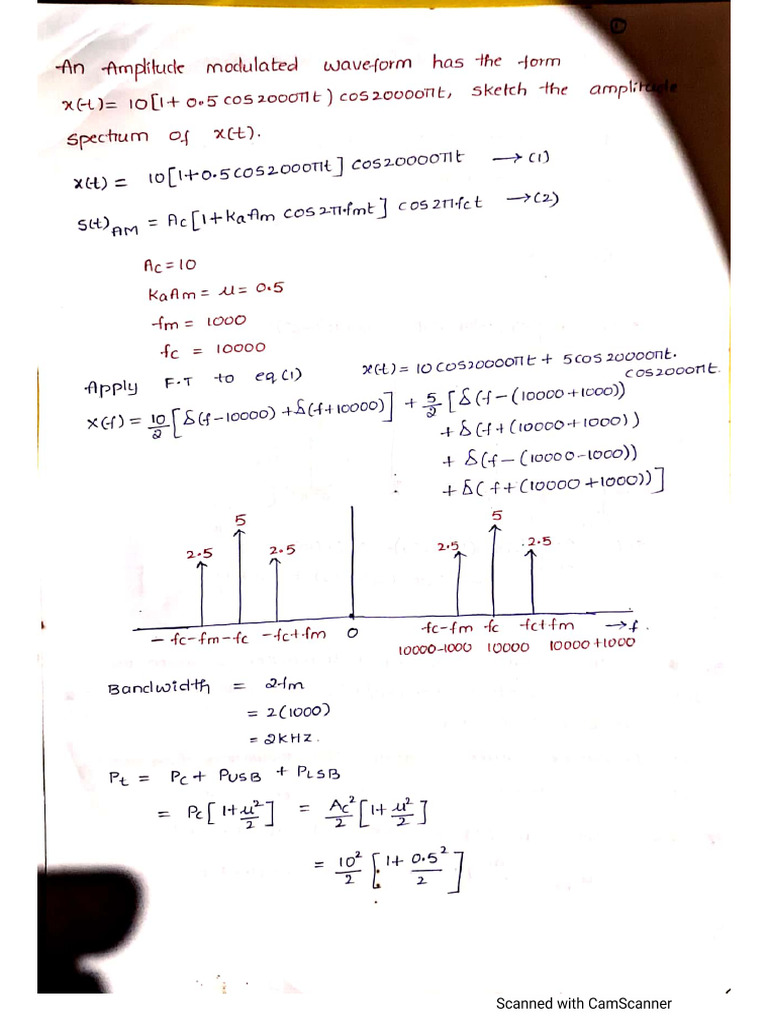 An Amplitude modulated waveform has the form
x(t)= 10[1+ 0.5 cos2000πt) cos20000πt, sketch the amplitude
spectrum of x(t).
x(t) = 10[1+0.5cos2000πt] cos20000πt → (1)
S(t)AM = Ac[1+KaAm cos2π.fmt] cos2πfct → (2)
Ac=10
KaAm = μ = 0.5
fm = 1000
fc = 10000
Apply F.T to eq(1)
x(t) = 10cos20000πt + 5cos20000πt.
cos2000πt.
X(f) = 10/2 [δ(f-10000) +δ(f+10000)] + 5/2 [δ(f-(10000+1000))
+ δ(f+(10000+1000))
+ δ(f-(10000-1000))
+ δ(f+(10000+1000))]
2.5 5 2.5 2.5 5 2.5
-fc-fm -fc -fc+fm 0 fc-fm fc fc+fm → f.
10000-1000 10000 10000+1000
Bandwidth = 2fm
= 2(1000)
= 2KHZ.
Pt = Pc + PUSB + PLSB
= Pc[1+μ²/2] = Ac²/2 [1+ μ²/2]
= 10²/2 [1+ 0.5²/2]
Scanned with CamScanner